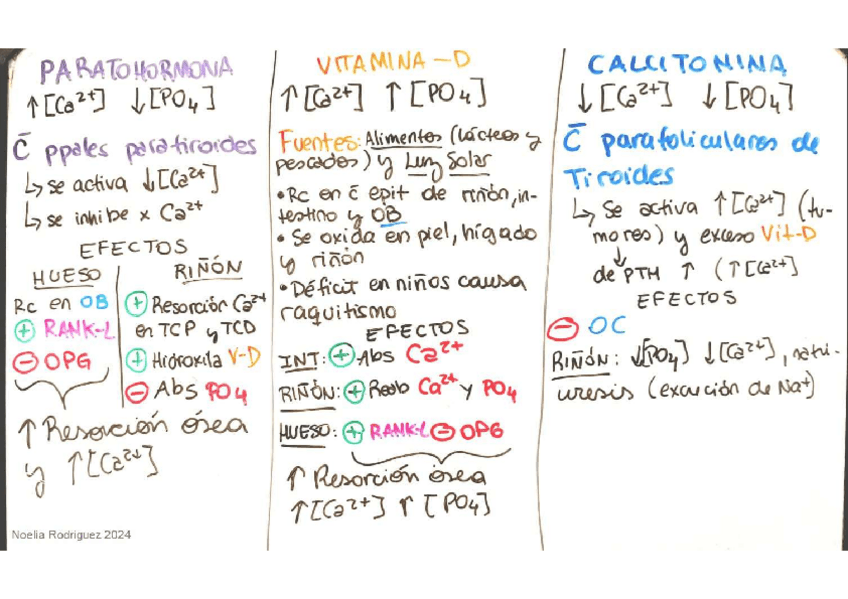 PARATOHORMONA
↑[Ca²⁺] ↓[PO₄]
C̄ ppales paratiroides
↳ se activa ↓[Ca²⁺]
↳ se inhibe x Ca²⁺
EFECTOS
HUESO
Rc en OB
⊕ RANK-L
⊖ OPG
RIÑÓN
⊕ Resorción Ca²⁺
en TCP y TCD
⊕ Hidroxila V-D
⊖ Abs PO₄
↑ Resorción ósea
y ↑[Ca²⁺]
Noelia Rodriguez 2024
VITAMINA-D
↑[Ca²⁺] ↑[PO₄]
Fuentes: Alimentos (lácteos y
pescados) y Luz Solar
• Rc en c̄ epit de riñón, in-
testino y OB
• Se oxida en piel, hígado
y riñón
• Déficit en niños causa
raquitismo
EFECTOS
INT: ⊕ Abs Ca²⁺
RIÑÓN: ⊕ Reab Ca²⁺ y PO₄
HUESO: ⊕ RANK-L ⊖ OPG
↑ Resorción ósea
↑[Ca²⁺] ↑[PO₄]
CALCITONINA
↓[Ca²⁺] ↓[PO₄]
C̄ parafoliculares de
Tiroides
↳ Se activa ↑[Ca²⁺] (tu-
mores) y exceso Vit-D
↓
de PTH ↑ (↑[Ca²⁺]
EFECTOS
⊖ OC
RIÑÓN: ↓[PO₄] ↓[Ca²⁺], natri-
uresis (excución de Na⁺)